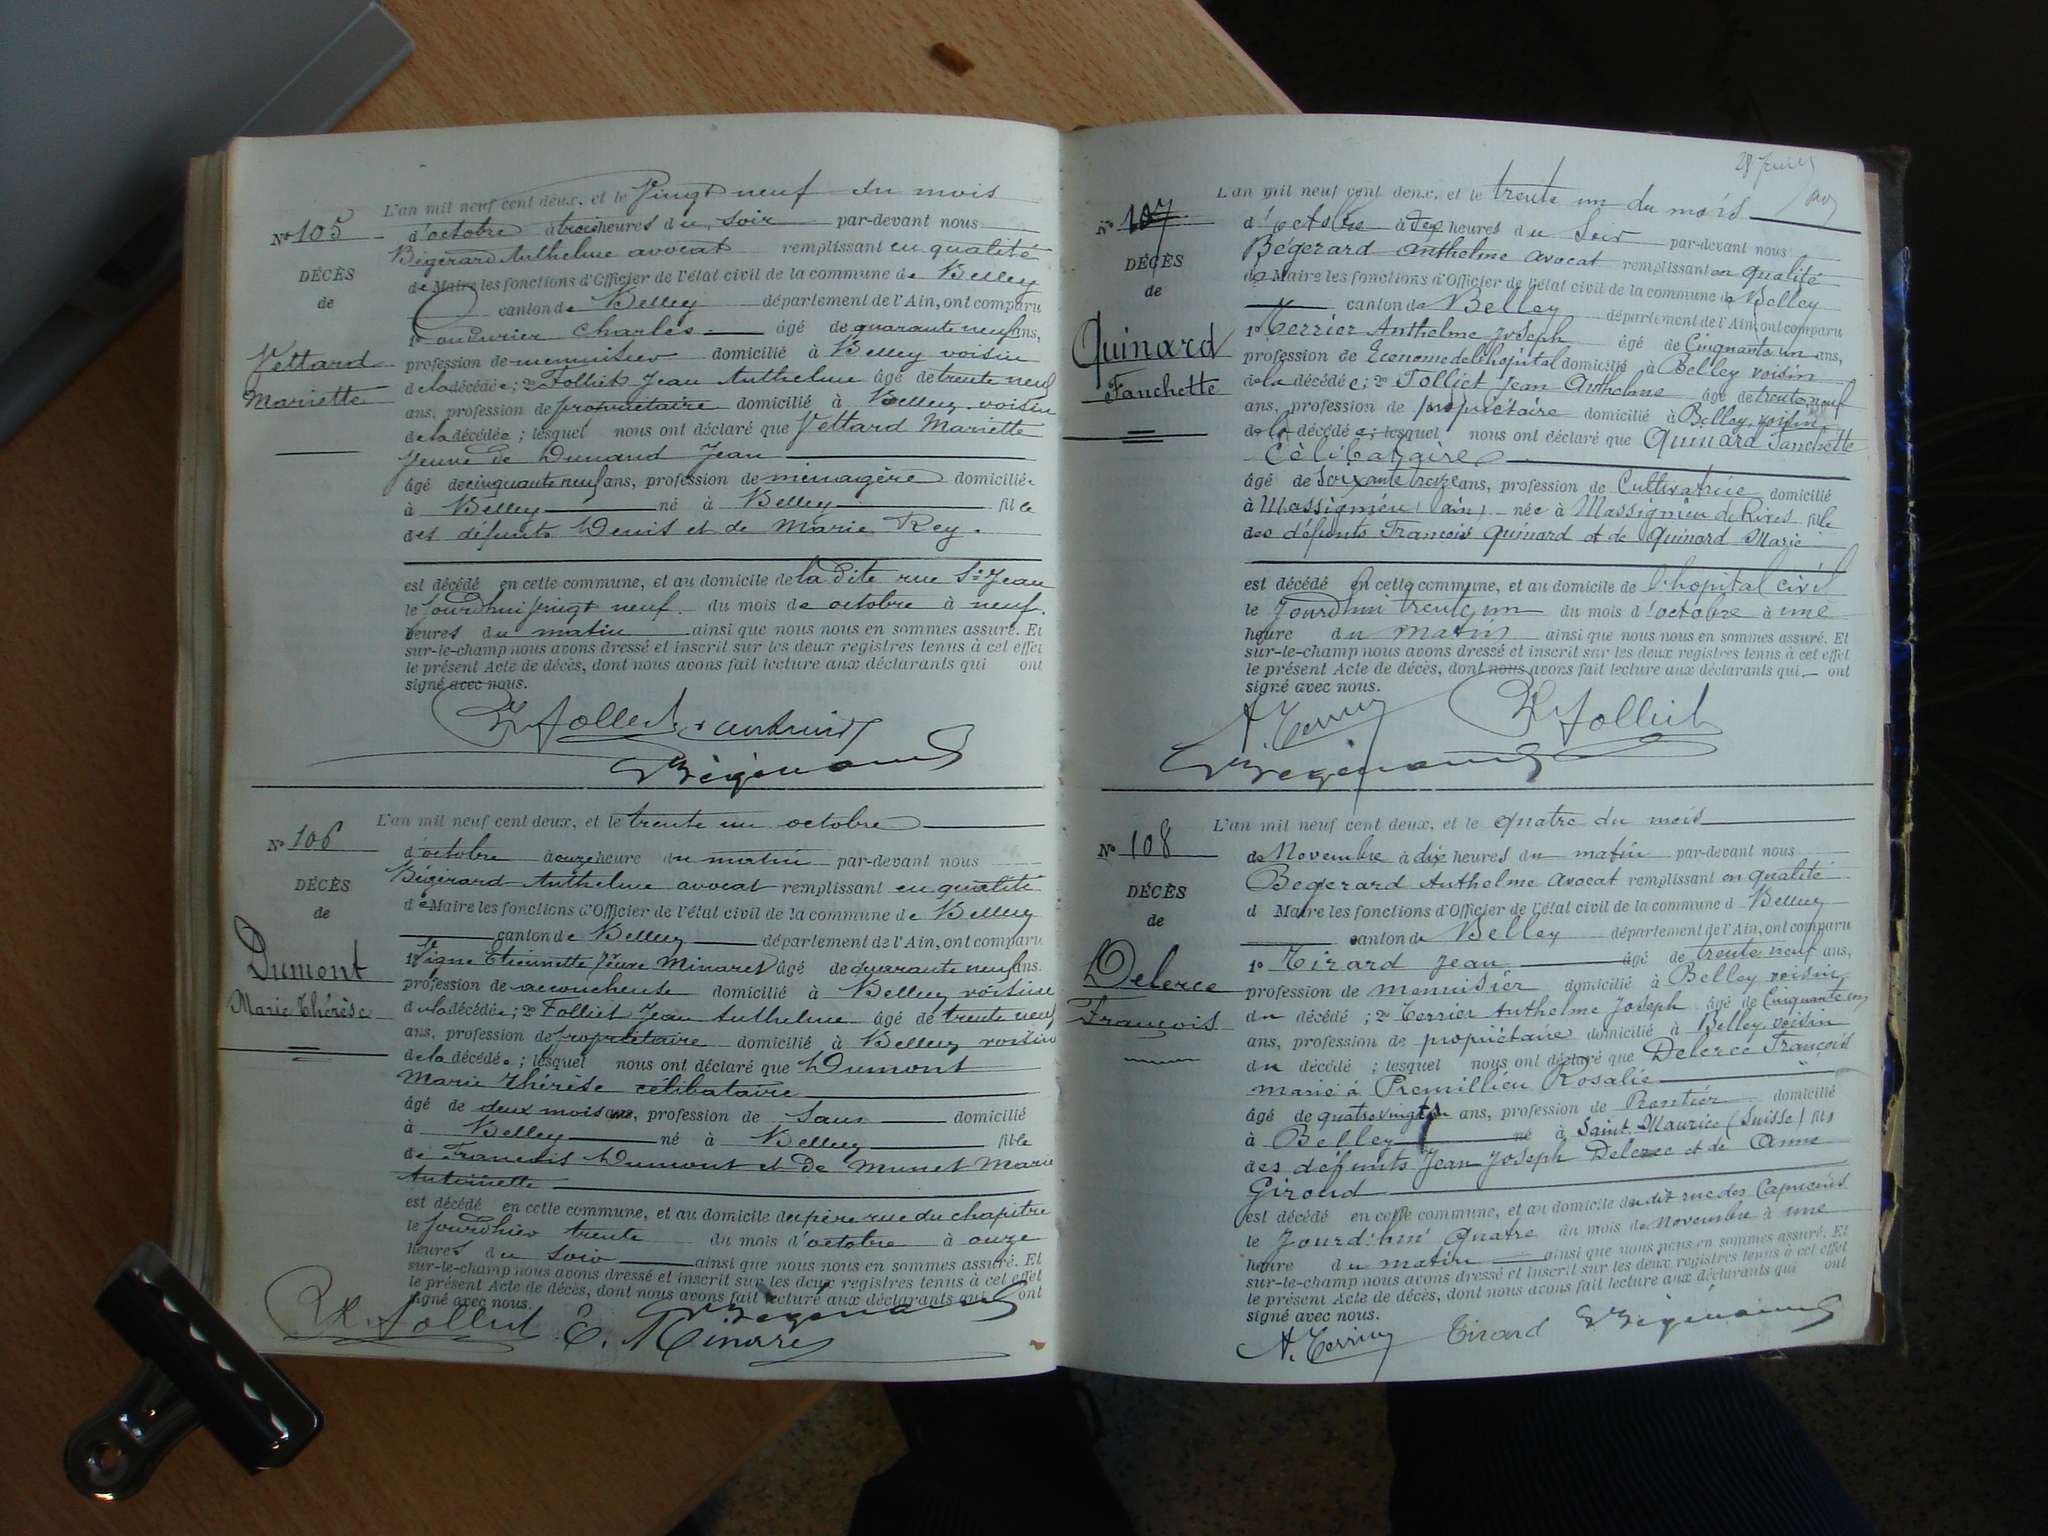 L'an mil neuf cent deux, et le vingt neuf du mois
N° 105
d'octobre à trois heures du soir par-devant nous
Bégérard Anthelme avocat remplissant en qualité
DÉCÈS
de Maire les fonctions d'Officier de l'état civil de la commune de Belley
de
canton de Belley département de l'Ain, ont comparu
1° Charles âgé de quarante neuf ans,
Vettard
profession de menuisier domicilié à Belley voisin
Mariette
de la décédée; 2° Folliet Jean Anthelme âgé de trente neuf
ans, profession de propriétaire domicilié à Belley voisin
de la décédée; lesquel nous ont déclaré que Vettard Mariette
veuve de Dunand Jean
âgé de cinquante neuf ans, profession de ménagère domicilié
à Belley né à Belley fille
des défunts Denis et de Marie Rey.
est décédé en cette commune, et au domicile de la dite rue St Jean
le jourdhui vingt neuf du mois de octobre à neuf
heures du matin ainsi que nous nous en sommes assuré. Et
sur-le-champ nous avons dressé et inscrit sur les deux registres tenus à cet effet
le présent Acte de décès, dont nous avons fait lecture aux déclarants qui ont
signé avec nous.
Folliet
L'an mil neuf cent deux, et le trente un octobre
N° 106
d'octobre à onze heure du matin par-devant nous
Bégérard Anthelme avocat remplissant en qualité
DÉCÈS
de Maire les fonctions d'Officier de l'état civil de la commune de Belley
de
canton de Belley département de l'Ain, ont comparu
Dumont
1° Vigne Etiennette veuve Minaret âgé de quarante neuf ans.
profession de accoucheuse domicilié à Belley voisine
Marie Thérèse
de la décédée; 2° Folliet Jean Anthelme âgé de trente neuf
ans, profession de propriétaire domicilié à Belley voisin
de la décédée; lesquel nous ont déclaré que Dumont
Marie Thérèse célibataire
âgé de deux mois ans, profession de Sans domicilié
à Belley né à Belley fille
de François Dumont et de Munet Marie
Antoinette
est décédé en cette commune, et au domicile du père rue du chapitre
le jourdhier trente du mois d'octobre à onze
heures du soir ainsi que nous nous en sommes assuré. Et
sur-le-champ nous avons dressé et inscrit sur les deux registres tenus à cet effet
le présent Acte de décès, dont nous avons fait lecture aux déclarants qui ont
signé avec nous.
Folliet E. Minaret
L'an mil neuf cent deux, et le trente un du mois
N° 107
d'octobre à heures du soir par-devant nous
Bégerard Anthelme avocat remplissant en qualité
DÉCÈS
de Maire les fonctions d'Officier de l'état civil de la commune de Belley
de
canton de Belley département de l'Ain, ont comparu
1° Terrier Anthelme Joseph âgé de Cinquante un ans,
Quinard
profession de Econome de l'hopital domicilié à Belley voisin
Fanchette
de la décédée; 2° Folliet Jean Anthelme âgé de trente neuf
ans, profession de propriétaire domicilié à Belley voisin
de la décédée; lesquel nous ont déclaré que Quinard Fanchette
Célibataire
âgé de Soixante treize ans, profession de Cultivatrice domicilié
à Massignieu (Ain) née à Massignieu de Rives fille
des défunts François Quinard et de Quinard Marie
est décédé en cette commune, et au domicile de l'hopital civil
le Jourdhui trente un du mois d'octobre à une
heure du matin ainsi que nous nous en sommes assuré. Et
sur-le-champ nous avons dressé et inscrit sur les deux registres tenus à cet effet
le présent Acte de décès, dont nous avons fait lecture aux déclarants qui ont
signé avec nous.
A. Terrier Folliet
L'an mil neuf cent deux, et le quatre du mois
N° 108
de Novembre à dix heures du matin par-devant nous
Bégerard Anthelme avocat remplissant en qualité
DÉCÈS
d Maire les fonctions d'Officier de l'état civil de la commune d Belley
de
canton de Belley département de l'Ain, ont comparu
Delerce
1° Tirard Jean âgé de trente neuf ans,
profession de menuisier domicilié à Belley voisin
François
du décédé; 2° Terrier Anthelme Joseph âgé de Cinquante un
ans, profession de propriétaire domicilié à Belley voisin
du décédé; lesquel nous ont déclaré que Delerce François
marié à Premillieu Rosalie
âgé de quatre vingt ans, profession de Rentier domicilié
à Belley né à Saint-Maurice (Suisse) fils
des défunts Jean Joseph Delerce et de Anne
Giroud
est décédé en cette commune, et au domicile du dit rue des Capucins
le Jourd'hui quatre du mois de Novembre à une
heure du matin ainsi que nous nous en sommes assuré. Et
sur-le-champ nous avons dressé et inscrit sur les deux registres tenus à cet effet
le présent Acte de décès, dont nous avons fait lecture aux déclarants qui ont
signé avec nous.
A. Terrier Tirard